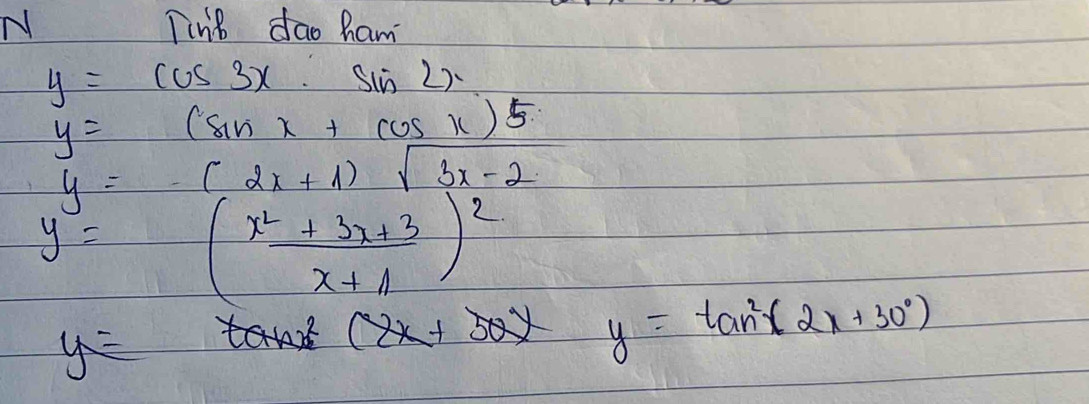 N Tính đao ham
y = cos 3x . sin 2x
y = (sin x + cos x)5
y = (2x + 1) √3x - 2
y = (x² + 3x + 3 / x + 1)².
y = tan² (2x + 30°) y = tan²(2x + 30°)